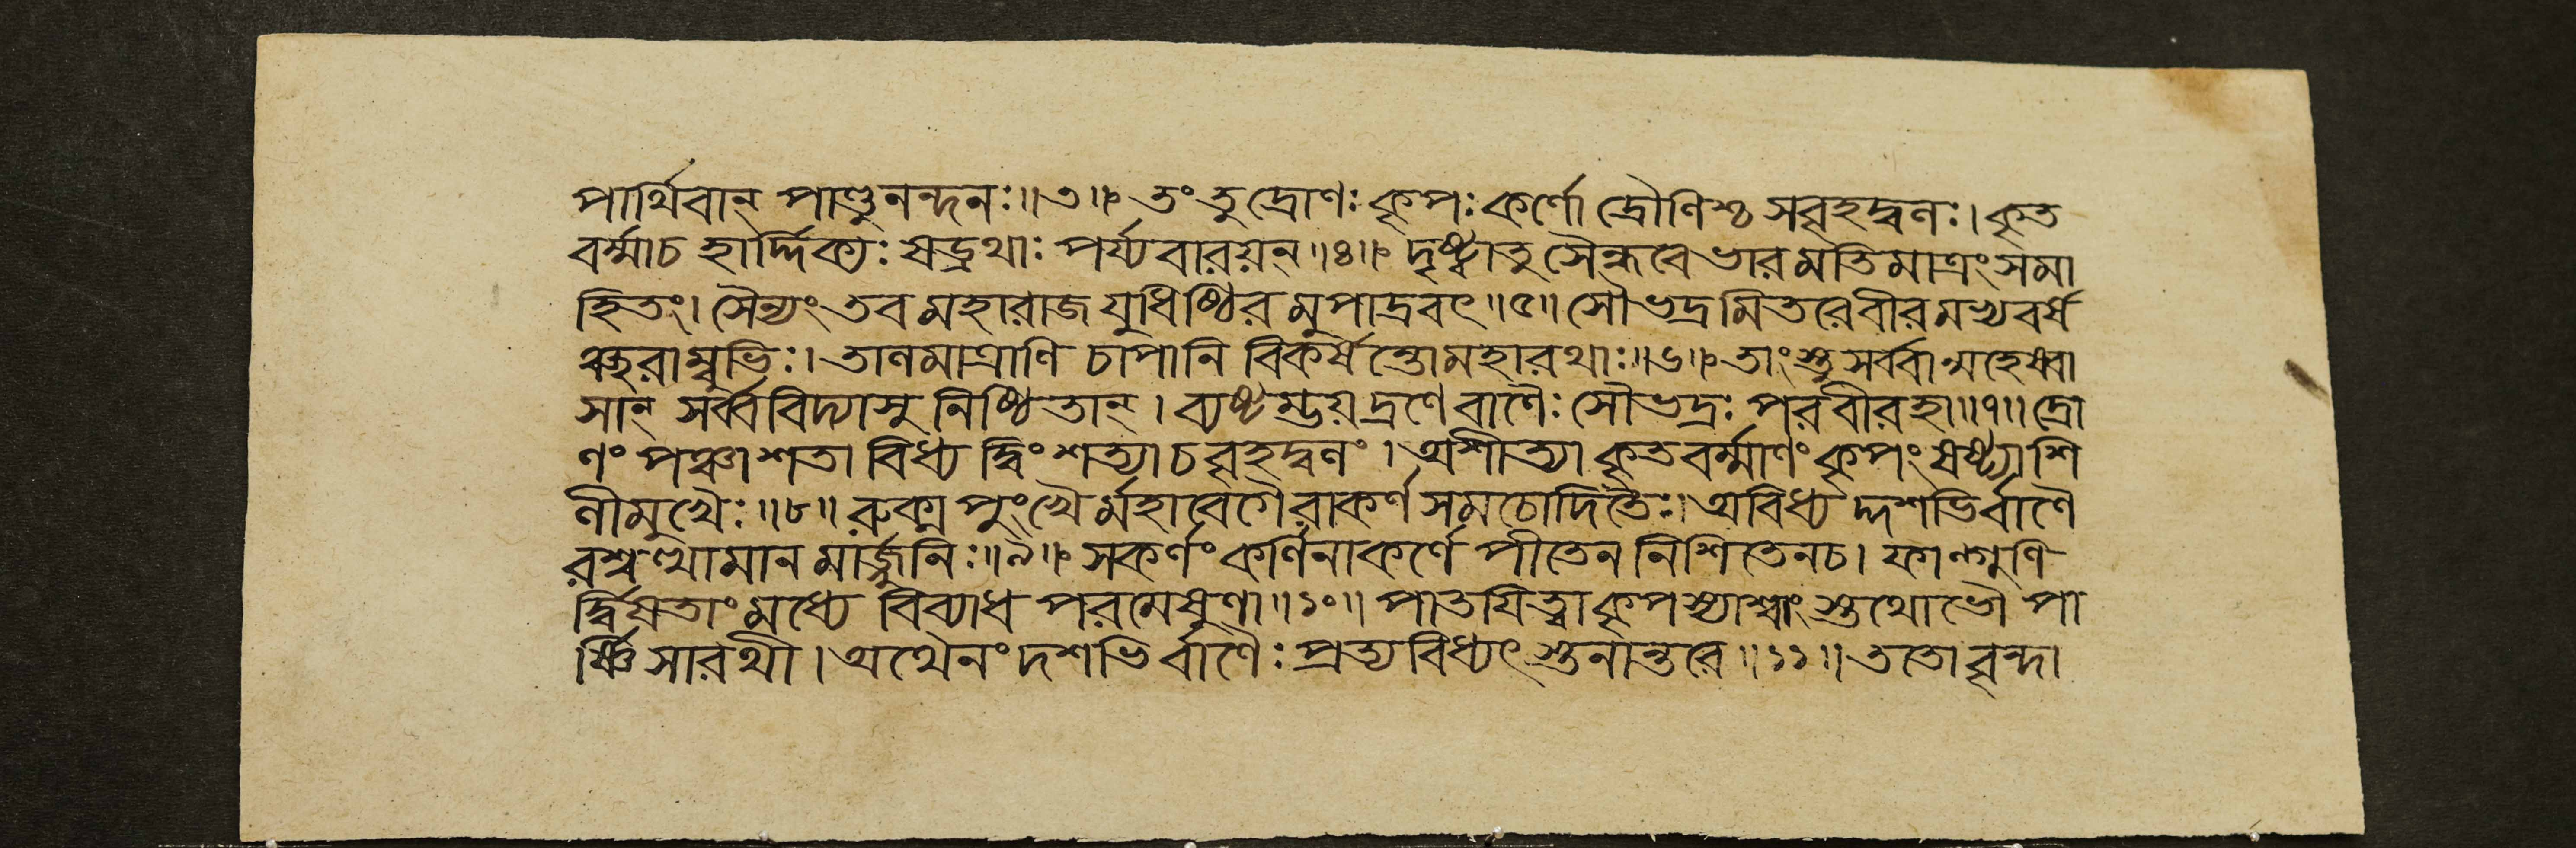 পার্থিবান্ পাণ্ডুনন্দনঃ॥৩॥ তং তু দ্রোণঃ কৃপঃ কর্ণো দ্রৌণিশ্চ সবৃহদ্বলঃ। কৃত
বর্ম্মাচ হার্দ্দিক্যঃ ষড্রথাঃ পর্য্যবারয়ন্॥৪॥ দৃষ্ট্বাতু সৈন্ধবে ভারমতিমাত্রং সমা
হিতং। সৈন্যং তব মহারাজ যুধিষ্ঠির মুপাদ্রবৎ॥৫॥ সৌভদ্রমিতরেবীরমভ্যবর্ষ
ঞ্ছরাম্বুভিঃ। তালমাত্রাণি চাপানি বিকর্ষন্তোমহারথাঃ॥৬॥ তাংস্তু সর্ব্বান্মহেষ্বা
সান্ সর্ব্ববিদ্যাসু নিষ্ঠিতান্। ব্যষ্টম্ভয়দ্রণে বাণৈঃ সৌভদ্রঃ পরবীরহা॥৭॥ দ্রো
ণং পঞ্চাশতা বিধ্য দ্বিংশত্যাচ বৃহদ্বলং। অশীত্যা কৃতবর্ম্মাণং কৃপং ষষ্ট্যাশি
লীমুখৈঃ॥৮॥ রুক্মপুংখৈর্মহাবেগৈরাকর্ণসমচোদিতৈঃ। অবিধ্য দ্দশভির্বাণৈ
রশ্বত্থামানমার্জ্জুনিঃ॥৯॥ সকর্ণং কর্ণিনাকর্ণে পীতেন নিশিতেনচ। ফাল্গুণি
র্দ্বিষতাং মধ্যে বিব্যাধ পরমেষুণা॥১০॥ পাতয়িত্বা কৃপস্যাশ্বাংস্তথোভৌ পা
র্ষ্ণিসারথী। অথৈনং দশভির্বাণৈঃ প্রত্যবিধ্যৎ স্তনান্তরে॥১১॥ ততো বৃন্দা